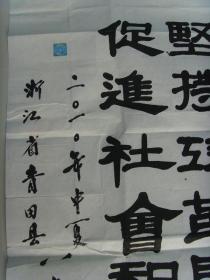 堅持
促進社會和
二〇一〇年中夏
浙江省青田县八